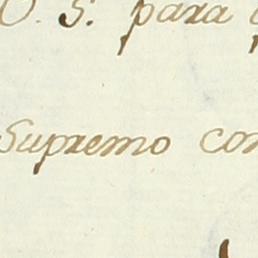 O. S. para
Supremo con